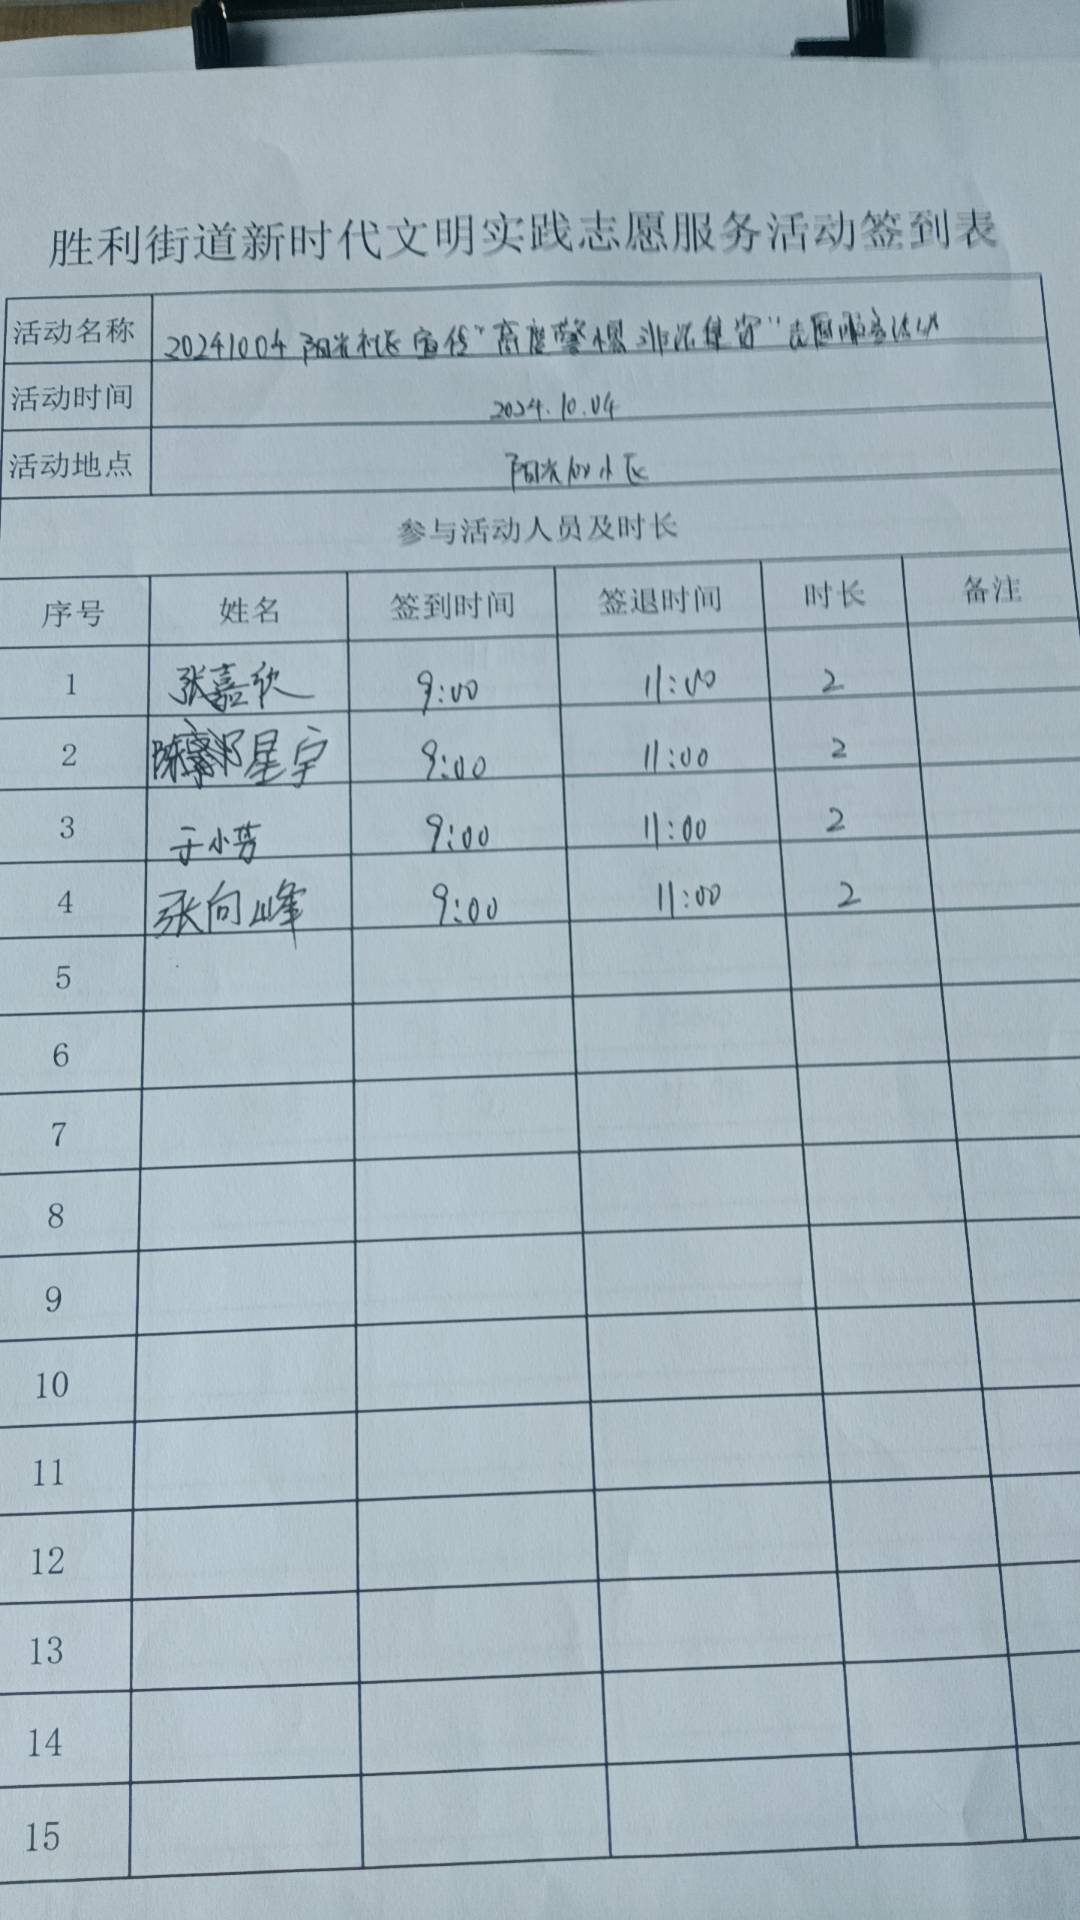 胜利街道新时代文明实践志愿服务活动签到表
活动名称 20241004阳光社区宣传“高度警惕非法集资”志愿服务活动
活动时间 2024.10.04
活动地点 阳光100小区
参与活动人员及时长
序号 姓名 签到时间 签退时间 时长 备注
1 张嘉欣 9:00 11:00 2
2 星宇 9:00 11:00 2
3 于小芳 9:00 11:00 2
4 张向峰 9:00 11:00 2
5
6
7
8
9
10
11
12
13
14
15